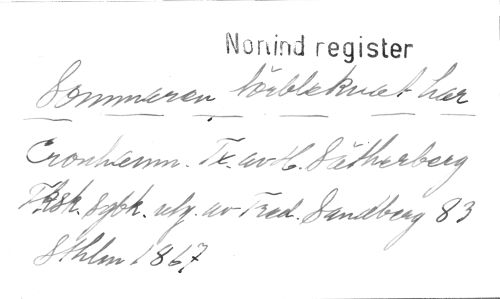 Nonind register
Sommaren förblekнat har
Cronhamn. Tx. av H. Sätherberg
Fksk. Sgbk. utg. av Fred. Sandberg 83
Sthlm 1867